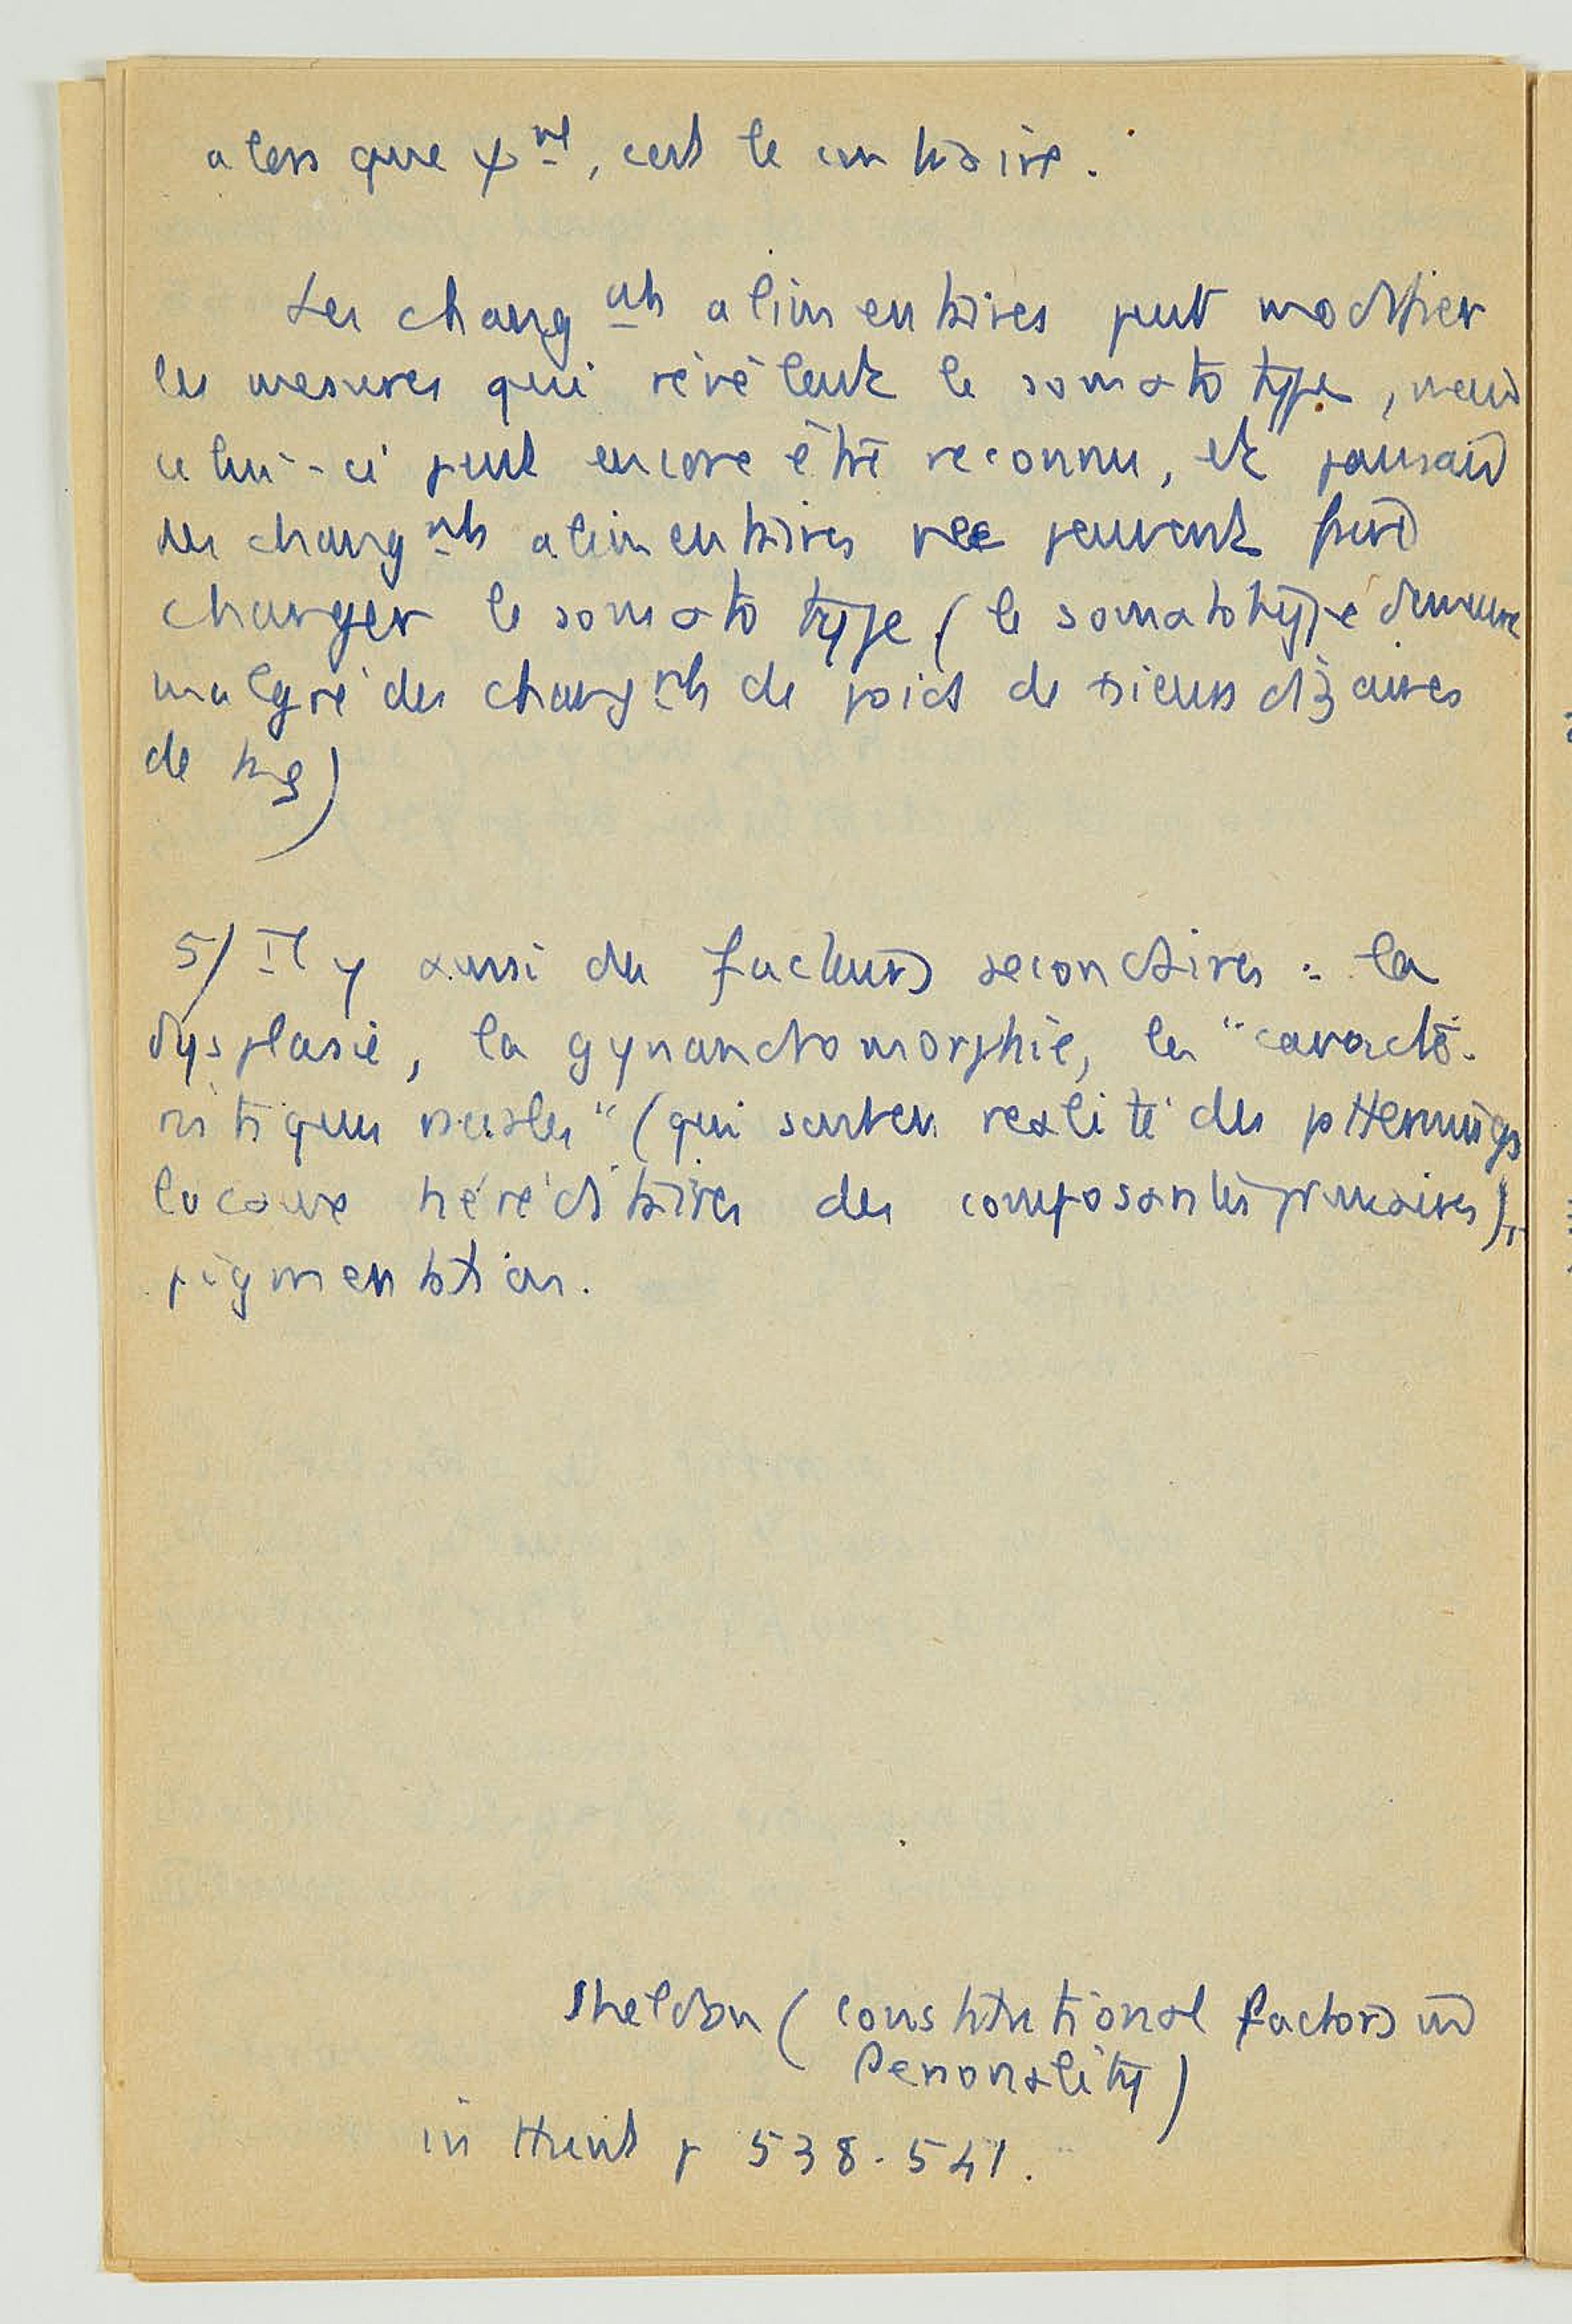 alors que xnt, c'est le contraire.
Les changnts alimentaires peut modifier
les mesures qui révèlent le somatotype, mais
celui-ci peut encore être reconnu, et jamais
des changnts alimentaires ne peuvent faire
changer le somatotype (le somatotype demeure
malgré des changnts de poids de sieurs dizaines
de kg)
5/ Il y aussi des facteurs secondaires : la
dysplasie, la gynandromorphie, les "caracté-
ristiques" (qui sont en réalité des patternings
locaux héréditaires des composantes primaires),
pigmentation.
Sheldon (Constitutional factors in
Personality)
in Hunt p 538-541.